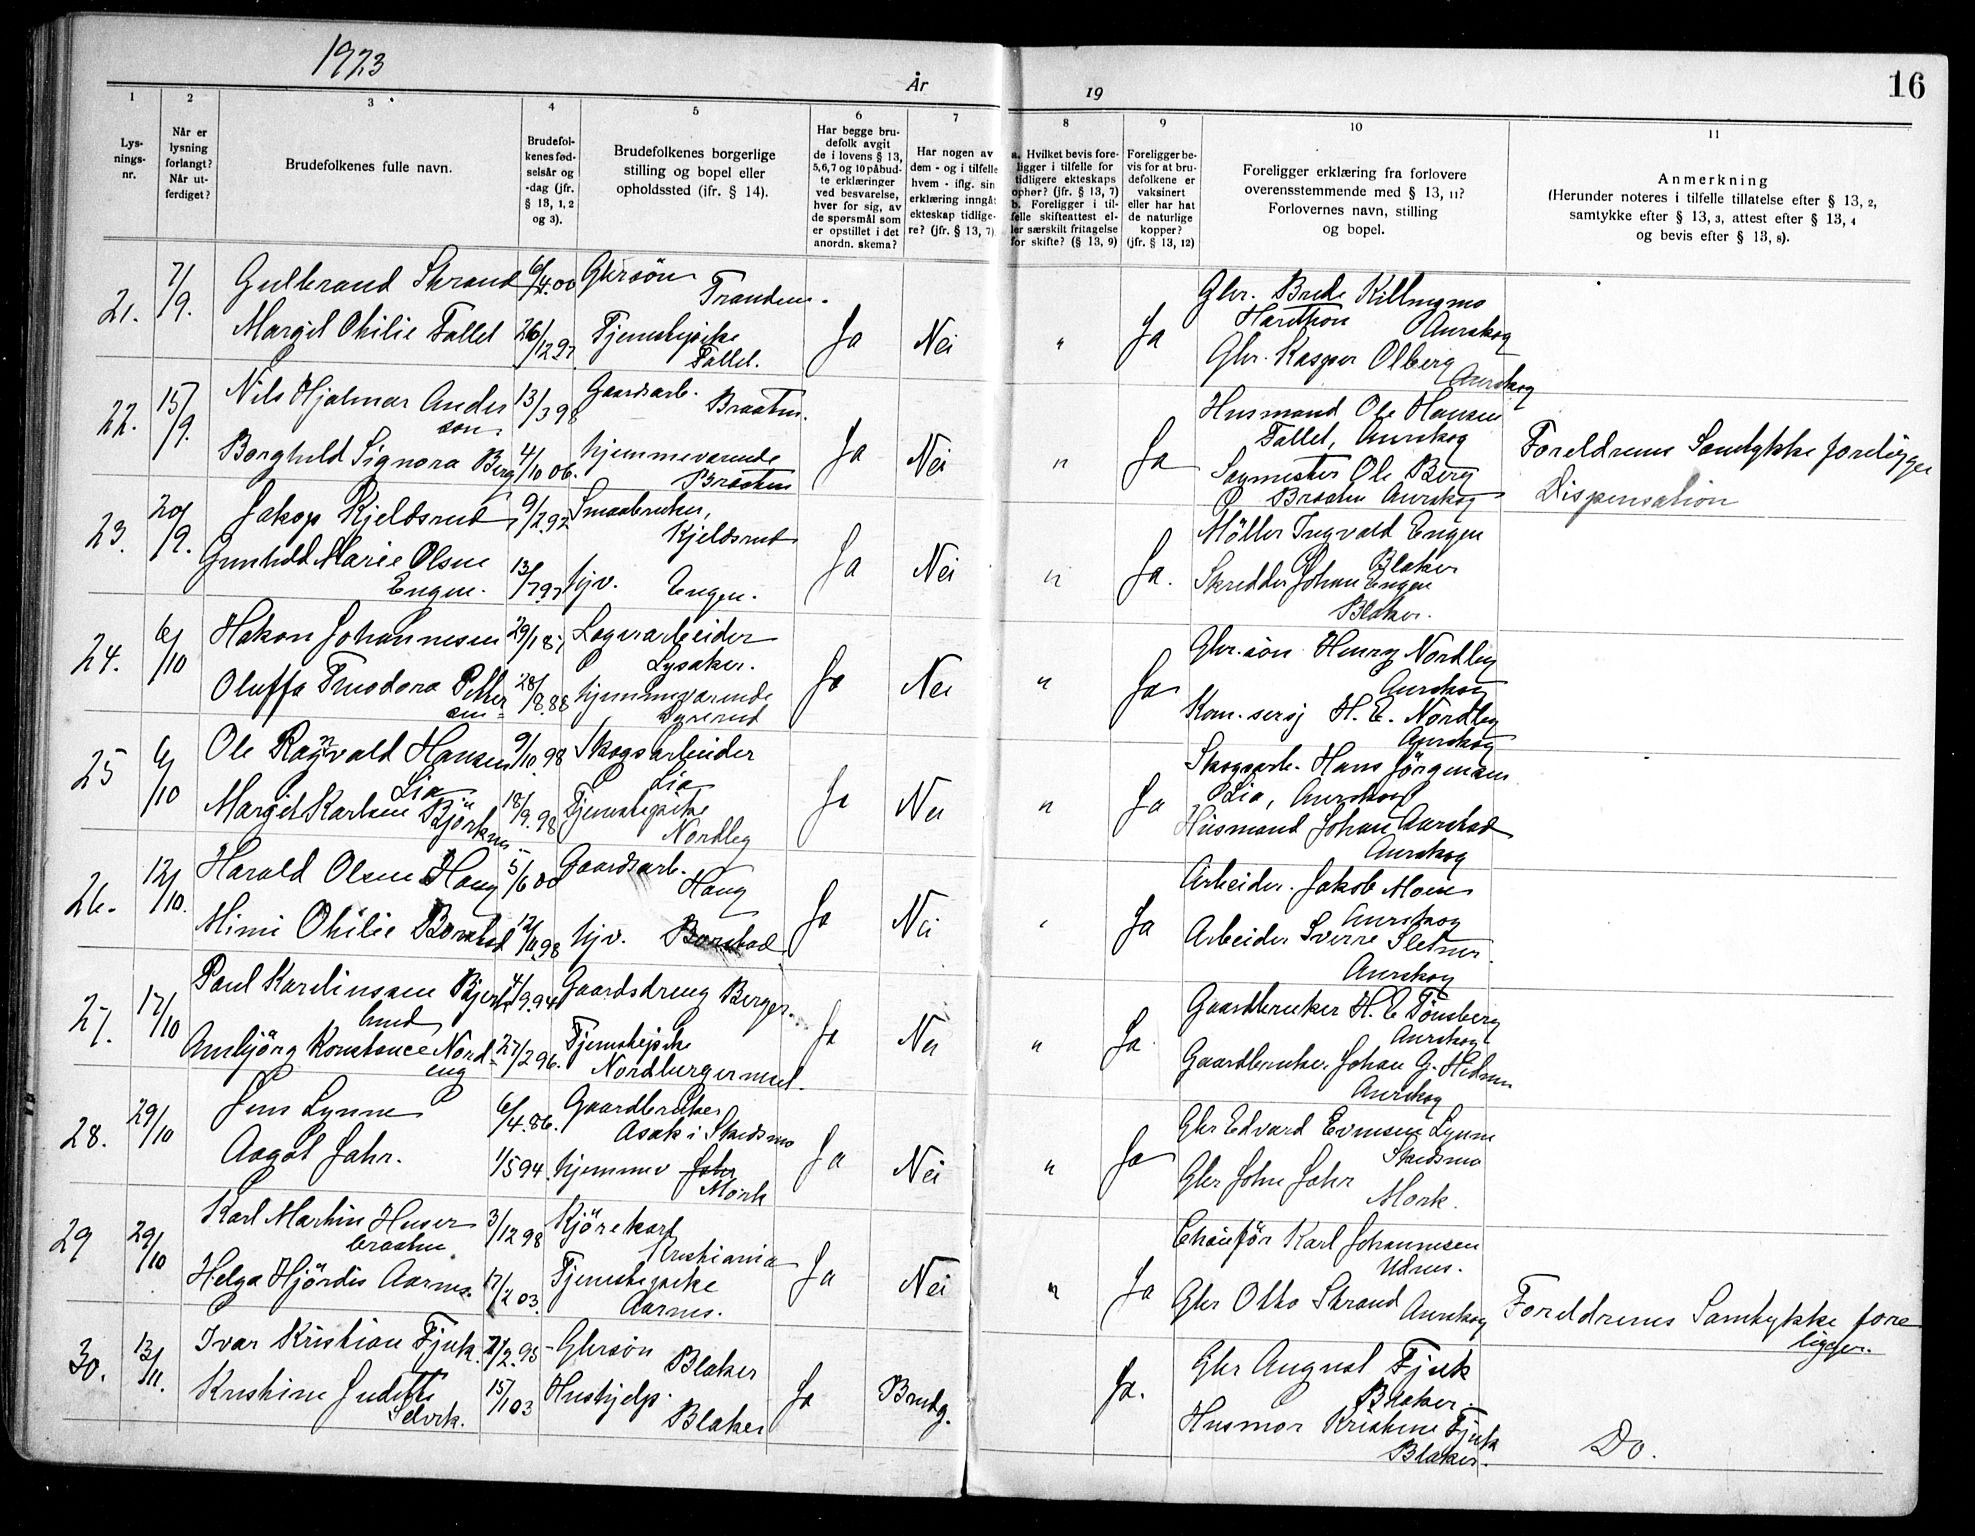 1923
År
19
16
1
2
3
4
5
6
7
8
9
10
11
Lys-
nings-
nr.
Når er
lysning
forlangt?
Når ut-
ferdiget?
Brudefolkenes fulle navn.
Brudefol-
kenes fød-
selsår og
-dag (jfr.
§ 13, 1, 2
og 3).
Brudefolkenes borgerlige
stilling og bopel eller
opholdssted (ifr. § 14).
Har begge bru-
defolk avgit
de i lovens § 13,
5,6,7 og 10 påbud-
te erklæringer
ved besvarelse,
hver for sig, av
de spørsmål som
er opstillet i det
anordn. skema?
Har nogen av
dem - og i tilfelle
hvem - iflg. sin
erklæring inngåt
ekteskap tidlige-
re? (jfr. § 13, 7)
a. Hvilket bevis fore-
ligger i tilfelle for
tidligere ekteskaps
ophør? (jfr. § 13, 7)
b. Foreligger i til-
felle skifteattest el-
ler særskilt fritagelse
for skifte? (§ 13, 9)
Foreligger be-
vis for at bru-
defolkene er
vaksinert
eller har hat
de naturlige
kopper?
(jfr. § 13, 12)
Foreligger erklæring fra forlovere
overensstemmende med § 13, 11?
Forlovernes navn, stilling
og bopel.
Anmerkning
(Herunder noteres i tilfelle tillatelse efter § 13, 2,
samtykke efter § 13, 3, attest efter § 13, 4
og bevis efter § 13, 8).
21. 7/9. Gulbrand Strand 6/4.00 Gbrsön
Trandem.
Margit Otilie Fallet 26/12 97 Tjenestepike
Fallet.
Ja Nei " Ja
Gbr. Brede Killingmo
Aurskog
Gbr. Kasper Olberg
Aurskog
22. 15/9. Nils Hjalmar Ander
son. 13/3 98 Gaardsarb.
Braaten.
Borghild Signora Berg 4/10 06. hjemmeværende
Braaten
Ja Nei " Ja
Husmand Ole Hansen
Fallet, Aurskog
Sagmester Ole Berg
Braaten Aurskog
Foreldrenes Samtykke foreligger
Dispensation
23. 20/9. Jakop Kjeldsrud 9/2.92 Smaabruker,
Kjeldsrud
Gunhild Marie Olsen
Engen. 13/7.97 hjv. Engen.
Ja Nei " Ja.
Möller Ingvald Engen
Blaker
Skredder Johan Engen
Blaker.
24. 6/10 Håkon Johannesen 29/1 87 Lagerarbeider
Lysaker.
Oluffa Teodora Petter
sen- 28/8.88 hjemmeværende
Ja Nei " Ja
Gbr.sön Henry Nordby
Aurskog
Kom.sersj H. E. Nordby
Aurskog
25 6/10 Ole Ragnvald Hansen
Lia 9/10.98 Skogsarbeider
Lia
Margit Karlsen Björknes 18/9.98 Tjenestepike
Nordby
Ja Nei " Ja
Skogsarb. Hans Jörgensen
Lia, Aurskog
Husmand Johan Aurstad
Aurskog
26. 12/10. Harald Olsen Haug 5/6 00 Gaardsarb.
Haug
Mimi Otilie Borstad 12/11.98 hjv. Borstad
Ja Nei " Ja
Arbeider. Jakob Moen
Aurskog
Arbeider Sverre Sletner.
Aurskog
27. 17/10 Paul Karelinsen Bjerke
lund 4/9.94 Gaardsdreng Berger.
Annbjörg Konstance Nord-
eng 27/2 96. Tjenestepike
Nordbergermoel.
Ja Nei " Ja
Gaardbruker H. E Tönsberg
Aurskog
Gaardbruker. Johan G. Hedmen
Aurskog
28. 29/10 Jens Lynne 6/4.86. Gaardbruker
Asak i Skedsmo
Aagot Jahr. 1/5 94 hjemmev Jahr
Mork
Ja Nei " Ja
Gbr Edvard Evensen Lynne
Skedsmo
Gbr John Jahr
Mork.
29 29/10 Karl Martin Huser
braaten. 3/12 98 Kjörekarl
Kristiania
Helga Hjördis Aarnes. 17/2 03. Tjenestepike
Aarnes.
Ja Nei " Ja
Chauför Karl Johannesen
Udnes.
Gbr Otto Strand Aurskog
Foreldrenes Samtykke fore
ligger.
30. 13/11. Ivar Kristian Fjuk. 7/2.95- Gbrsön
Blaker
Kristine Judette
Selvik. 15/1 03 Hushjelp.
Blaker
Ja Brudg. Ja.
Gbr August Fjuk
Blaker.
Husmor Kristine Fjuk
Blaker.
Do.